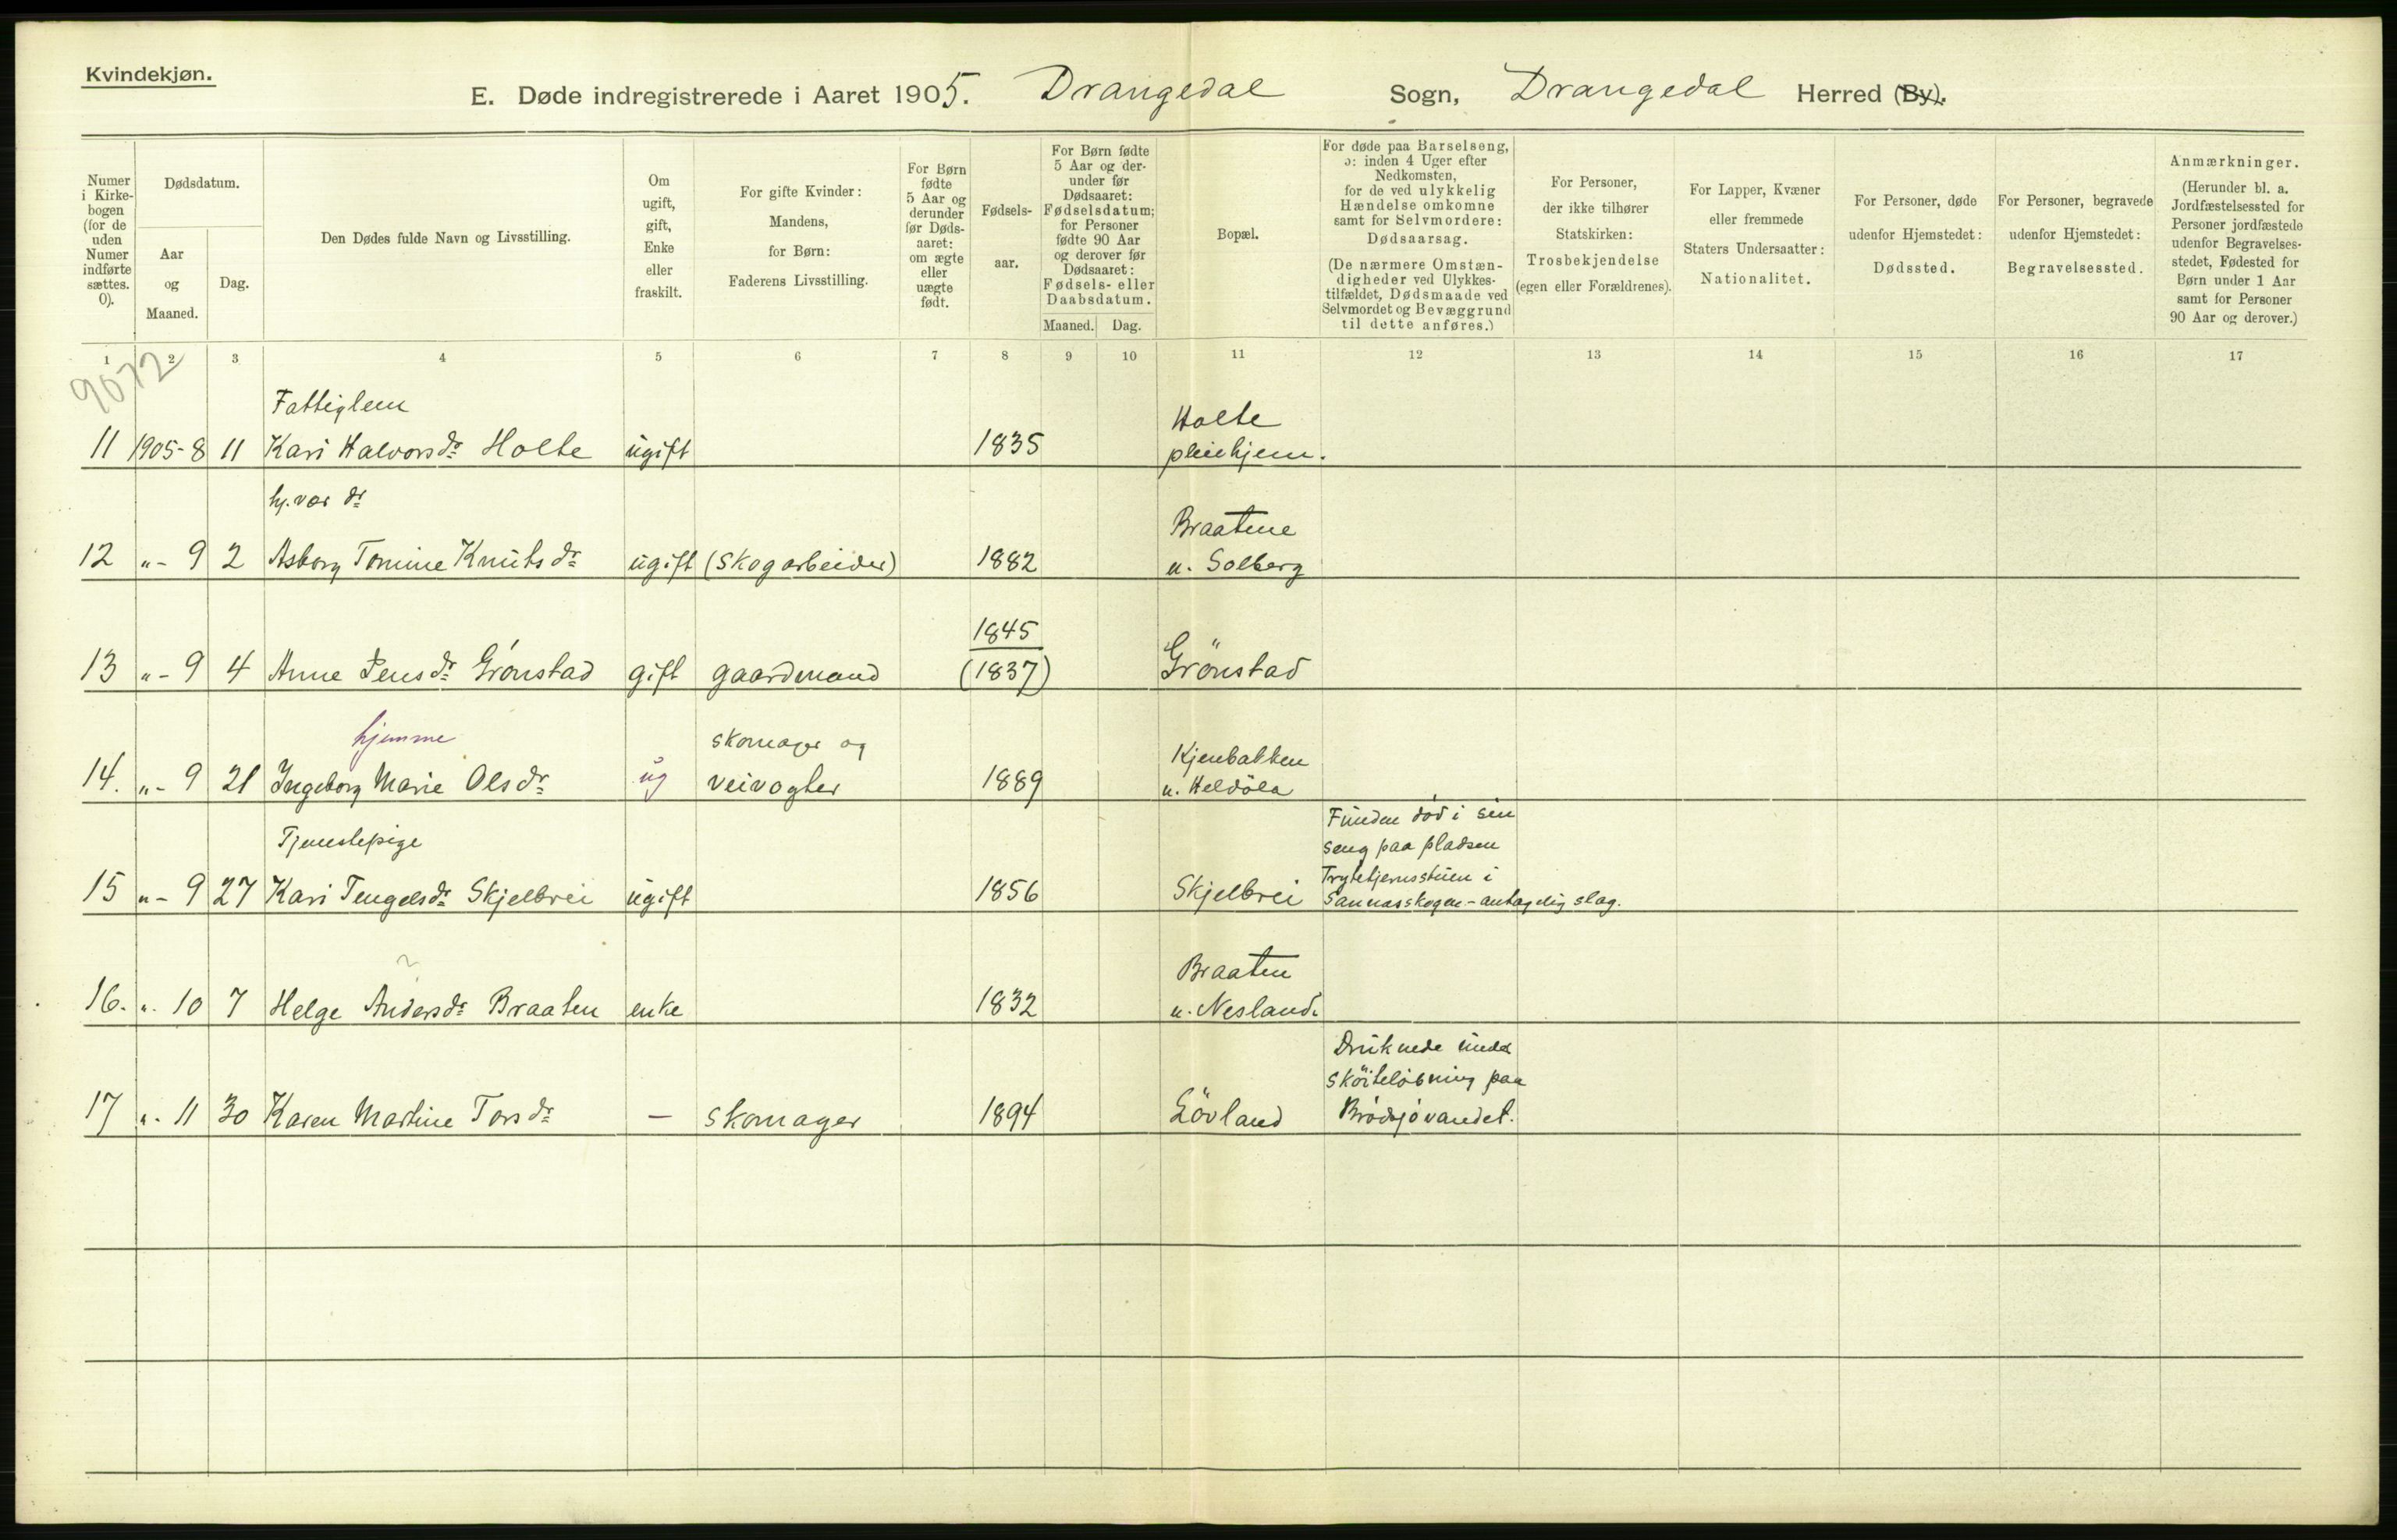 Kvindekjøn.
E. Døde indregistrerede i Aaret 1905. Drangedal Sogn, Drangedal Herred (By).
Numer i Kirkebogen (for de uden Numer indførte sættes. 0).
Dødsdatum.
Aar og Maaned.
Dag.
Den Dødes fulde Navn og Livsstilling.
Om ugift, gift, Enke eller fraskilt.
For gifte Kvinder: Mandens, for Børn: Faderens Livsstilling.
For Børn fødte 5 Aar og derunder før Dødsaaret: om ægte eller uægte født.
Fødselsaar.
For Børn fødte 5 Aar og derunder før Dødsaaret: Fødselsdatum; for Personer fødte 90 Aar og derover før Dødsaaret: Fødsels- eller Daabsdatum.
Maaned. Dag.
Bopæl.
For døde paa Barselseng, ɔ: inden 4 Uger efter Nedkomsten, for de ved ulykkelig Hændelse omkomne samt for Selvmordere: Dødsaarsag.
(De nærmere Omstændigheder ved Ulykkestilfældet, Dødsmaade ved Selvmordet og Bevæggrund til dette anføres.)
For Personer, der ikke tilhører Statskirken: Trosbekjendelse (egen eller Forældrenes).
For Lapper, Kvæner eller fremmede Staters Undersaatter: Nationalitet.
For Personer, døde udenfor Hjemstedet: Dødssted.
For Personer, begravede udenfor Hjemstedet: Begravelsessted.
Anmærkninger.
(Herunder bl. a. Jordfæstelsessted for Personer jordfæstede udenfor Begravelsesstedet, Fødested for Børn under 1 Aar samt for Personer 90 Aar og derover.)
1 2 3 4 5 6 7 8 9 10 11 12 13 14 15 16 17
9072
Fattiglem Holte
11 1905-8 11 Kari Halvorsdr Holte ugift 1835 pleiehjem.
hj. vær. dr Braatene
12 "- 9 2 Asborg Tomine Knutsdr ugift (Skogarbeider) 1882 u. Solberg
1845
13 "- 9 4 Anne Jensdr Grønstad gift gaardmand (1837) Grönstad
hjemme skomager og Kjenbakken
14. "- 9 21 Ingeborg Marie Olsdr ug veivogter 1889 u. Heldöla
Tjenestepige Funden död i sin
seng paa pladsen
Trytetjernsstuen i
15 "- 9 27 Kari Tengelsdr Skjelbrei ugift 1856 Skjelbrei Sannesskogen - antagelig slag.
Braaten
16. ". 10 7 Helge Andersdr Braaten enke 1832 u. Nesland.
Druknede under
sköiteløbning paa
17 ". 11 30 Karen Martine Torsdr — Skomager 1894 Lövland Brødsjøvandet.